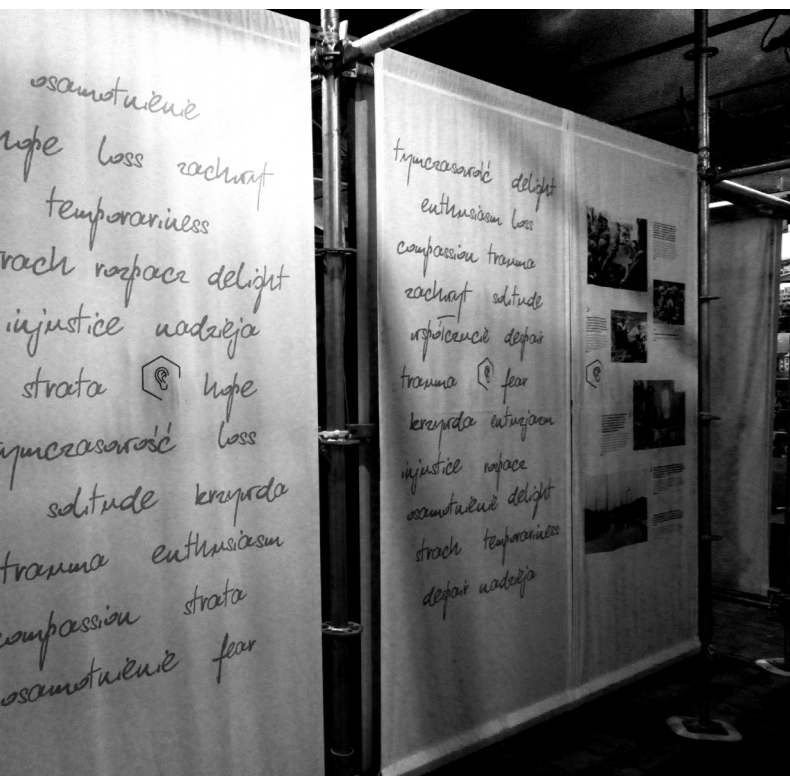 osamotnienie
hope loss zachwyt
temporariness
strach rozpacz delight
injustice nadzieja
strata hope
tymczasowość loss
solitude krzywda
trauma enthusiasm
compassion strata
osamotnienie fear
tymczasowość delight
enthusiasm loss
compassion trauma
zachwyt solitude
współczucie despair
trauma fear
krzywda entuzjazm
injustice rozpacz
osamotnienie delight
strach temporariness
despair nadzieja